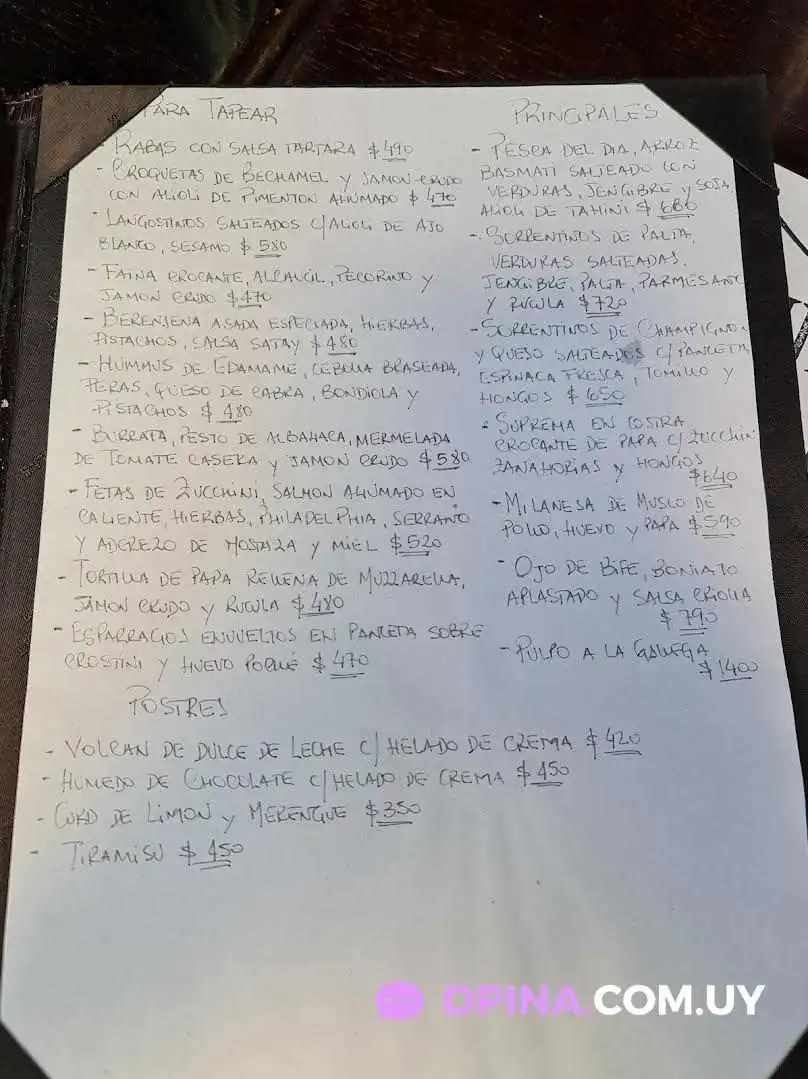 PARA TAPEAR
- RABAS CON SALSA TARTARA $490
- CROQUETAS DE BECHAMEL Y JAMON CRUDO
CON ALIOLI DE PIMENTON AHUMADO $470
- LANGOSTINOS SALTEADOS C/ALIOLI DE AJO
BLANCO, SESAMO $580
- FAINA CROCANTE, ALCAUCIL, PECORINO Y
JAMON CRUDO $470
- BERENJENA ASADA ESPECIADA, HIERBAS,
PISTACHOS, SALSA SATAY $480
- HUMMUS DE EDAMAME, CEBOLLA BRASEADA,
PERAS, QUESO DE CABRA, BONDIOLA Y
PISTACHOS $480
- BURRATA, PESTO DE ALBAHACA, MERMELADA
DE TOMATE CASERA Y JAMON CRUDO $580
- FETAS DE ZUCCHINI, SALMON AHUMADO EN
CALIENTE, HIERBAS, PHILADELPHIA, SERRANO
Y ADEREZO DE MOSTAZA Y MIEL $520
- TORTILLA DE PAPA RELLENA DE MUZZARELLA,
JAMON CRUDO Y RUCULA $480
- ESPARRAGOS ENVUELTOS EN PANCETA SOBRE
CROSTINI Y HUEVO POCHÉ $470
PRINCIPALES
- PESCA DEL DIA, ARROZ
BASMATI SALTEADO CON
VERDURAS, JENGIBRE Y SOJA
ALIOLI DE TAHINI $680
- SORRENTINOS DE PALTA,
VERDURAS SALTEADAS,
JENGIBRE, PALTA, PARMESANO
Y RUCULA $720
- SORRENTINOS DE CHAMPIGNON
Y QUESO SALTEADOS C/PANCETA
ESPINACA FRESCA, TOMILLO Y
HONGOS $650
- SUPREMA EN COSTRA
CROCANTE DE PAPA C/ZUCCHINI
ZANAHORIAS Y HONGOS
$640
- MILANESA DE MUSLO DE
POLLO, HUEVO Y PAPA $590
- OJO DE BIFE, BONIATO
APLASTADO Y SALSA CRIOLLA
$790
- PULPO A LA GALLEGA
$1400
POSTRES
- VOLCAN DE DULCE DE LECHE C/HELADO DE CREMA $420
- HUMEDO DE CHOCOLATE C/HELADO DE CREMA $450
- CURD DE LIMON Y MERENGUE $350
- TIRAMISU $450
OPINA.COM.UY